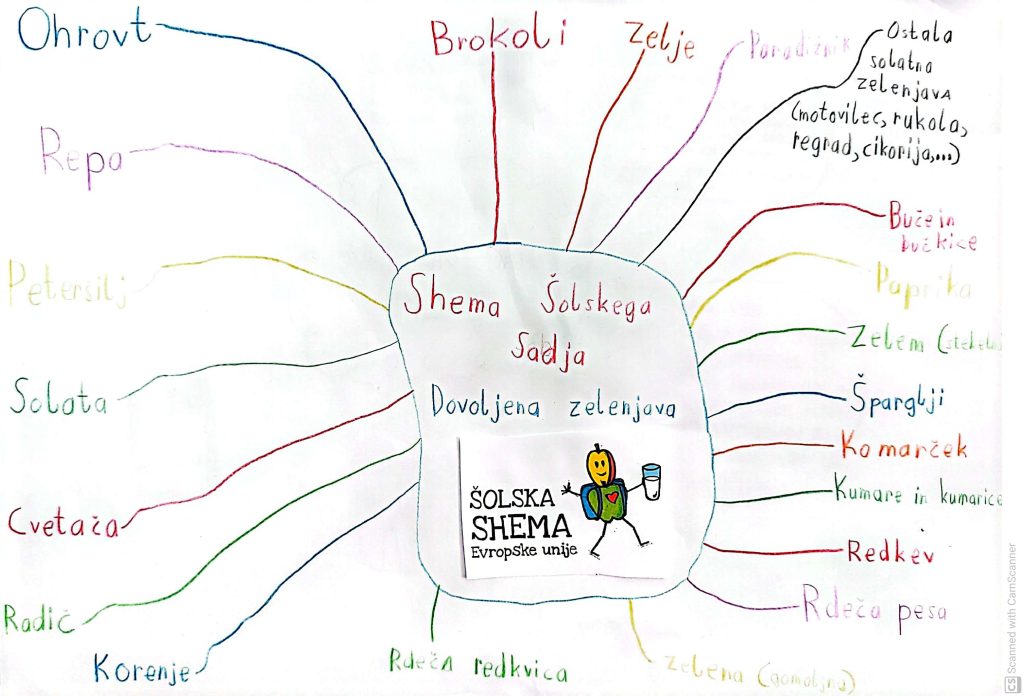 Ohrovt
Brokoli
Zelje
Paradižnik
Ostala
solatna
zelenjava
(motovilec, rukola,
regrad, cikorija,...)
Repa
Buče in
bučkice
Petersilj
Paprika
Shema Šolskega
Sadja
Dovoljena zelenjava
Zelem (stebelna
Solata
Šparglji
Komarček
Kumare in kumarice
ŠOLSKA
SHEMA
Evropske unije
Cvetača
Redkev
Rdeča pesa
Radič
Korenje
Rdeča redkvica
zelena (gomoljna)
CS Scanned with CamScanner